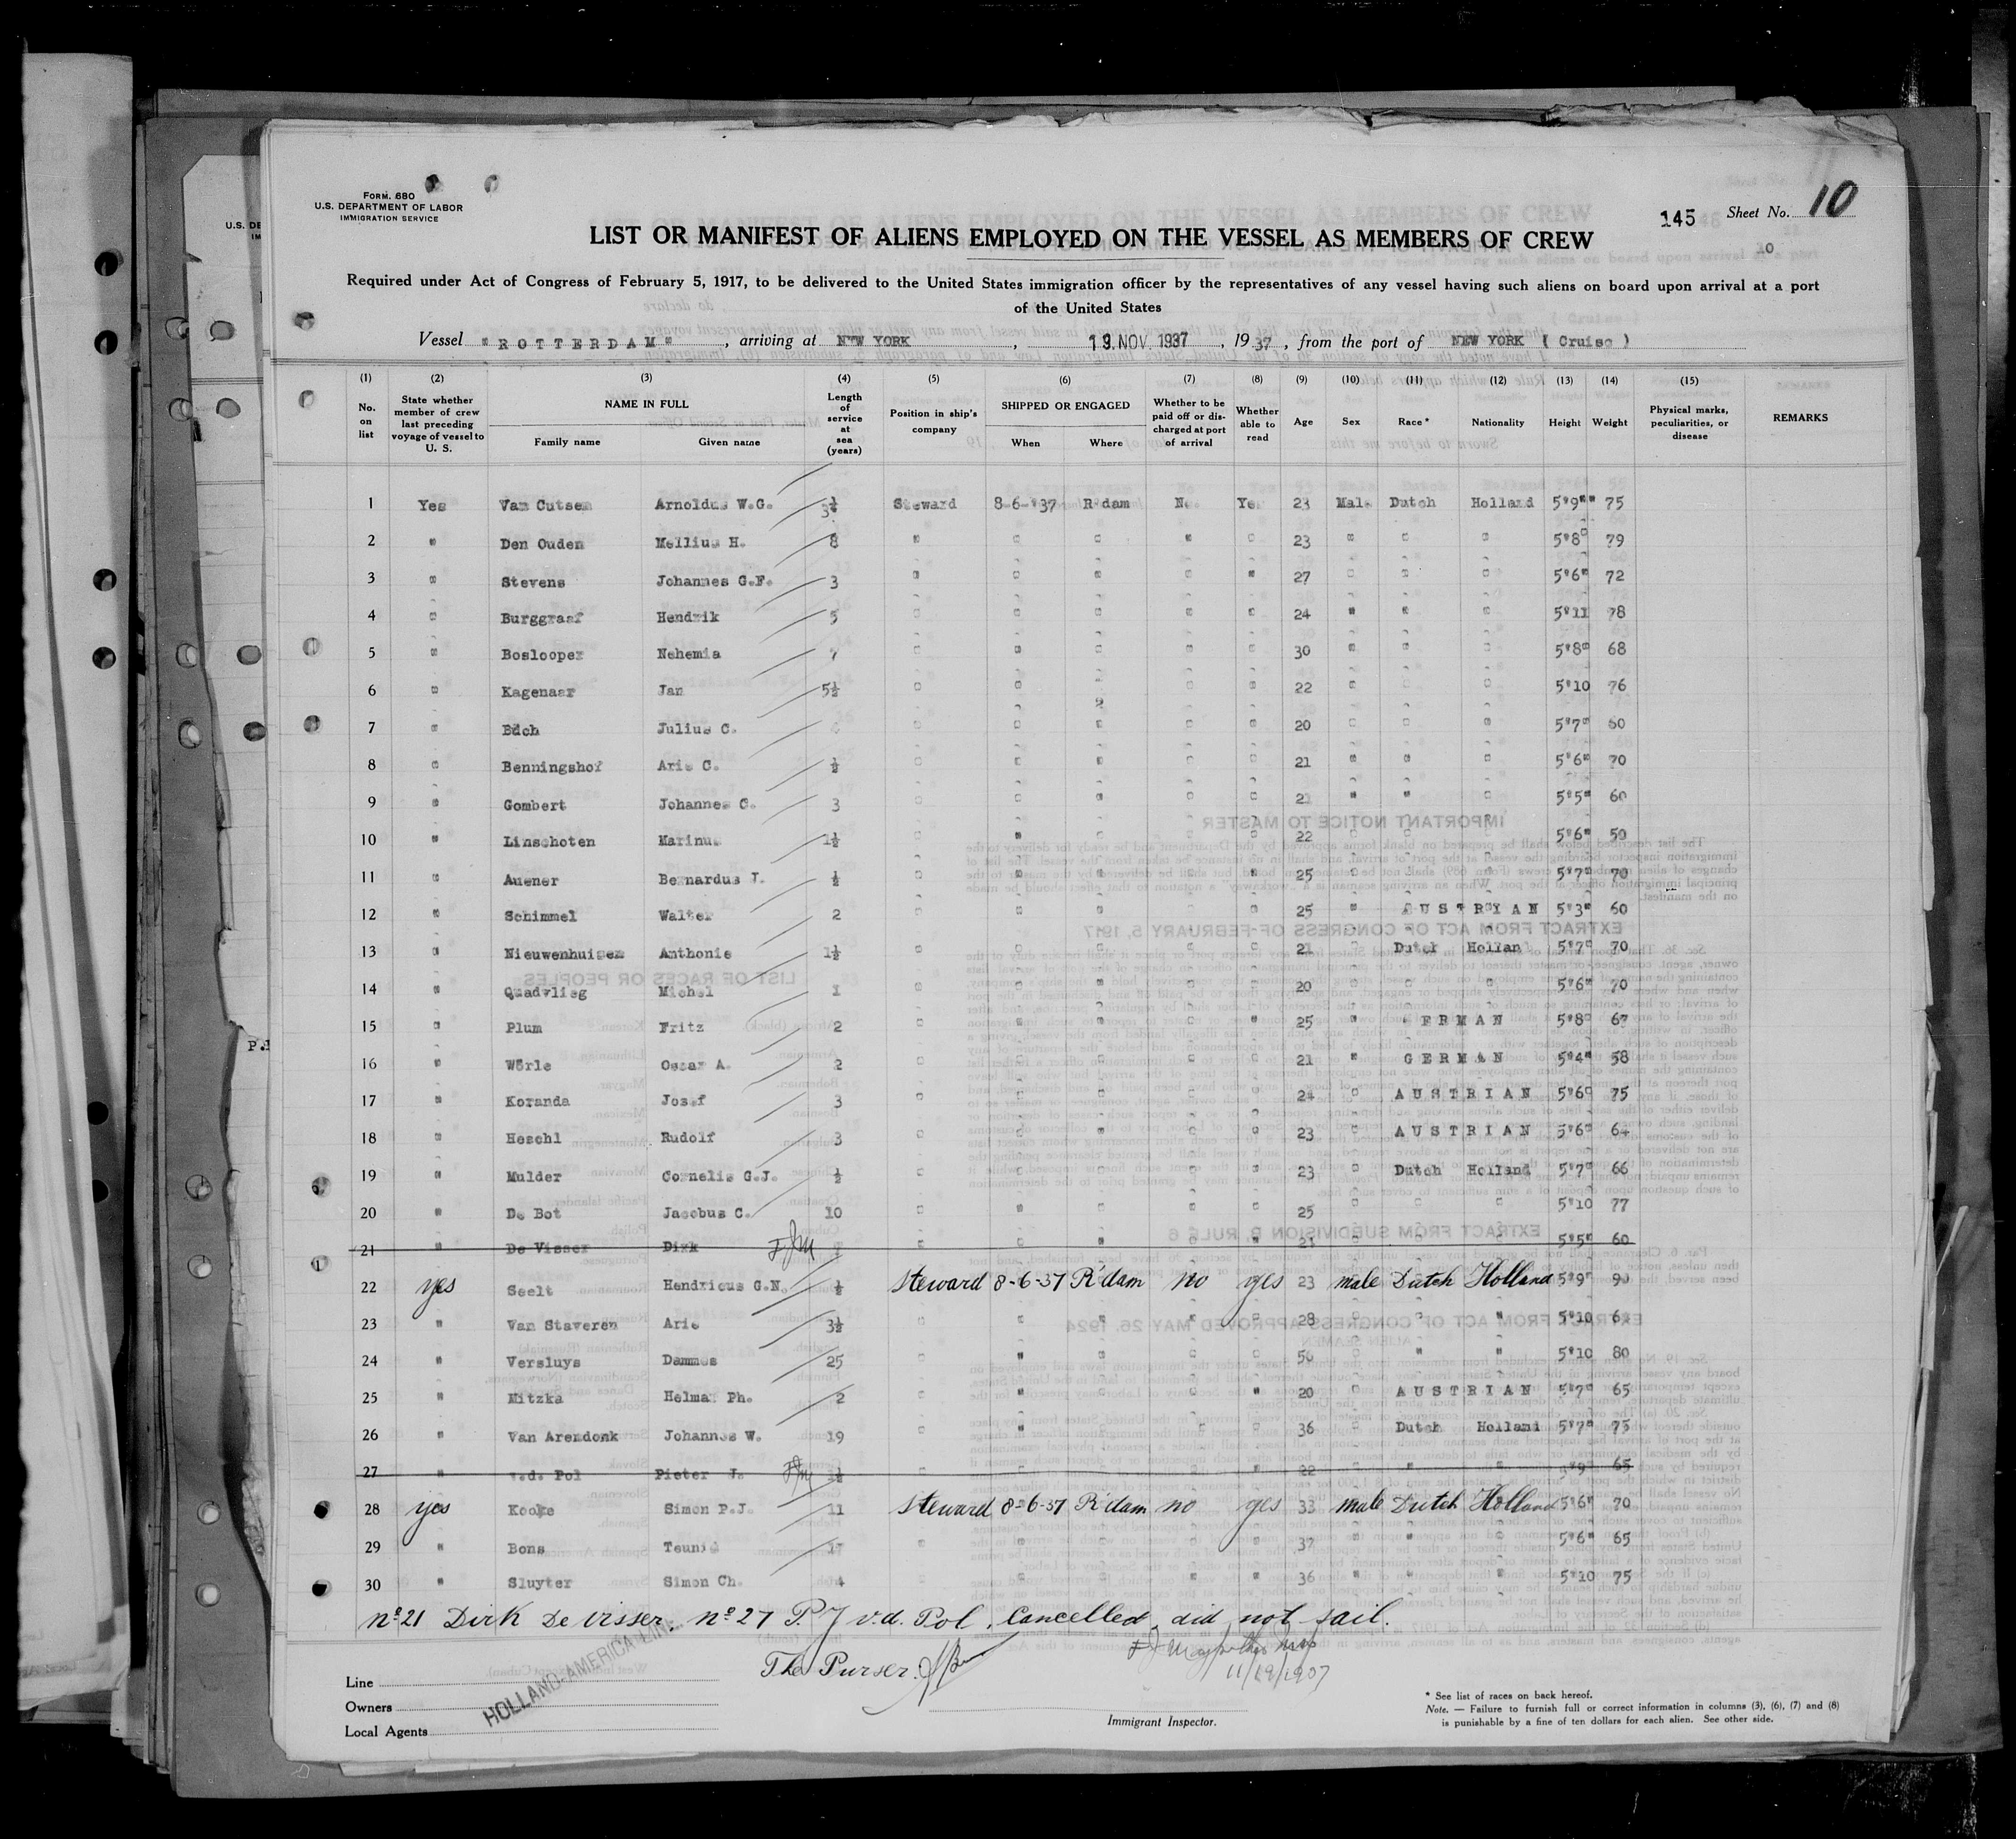 FORM. 680
U.S. DEPARTMENT OF LABOR
IMMIGRATION SERVICE
145 Sheet No. 10
10
LIST OR MANIFEST OF ALIENS EMPLOYED ON THE VESSEL AS MEMBERS OF CREW
Required under Act of Congress of February 5, 1917, to be delivered to the United States immigration officer by the representatives of any vessel having such aliens on board upon arrival at a port
of the United States
Vessel "ROTTERDAM", arriving at NEW YORK, 19.NOV.1937, 1937, from the port of NEW YORK (Cruise)
(1) No. on list (2) State whether member of crew last preceding voyage of vessel to U. S. (3) NAME IN FULL Family name Given name (4) Length of service at sea (years) (5) Position in ship's company (6) SHIPPED OR ENGAGED When Where (7) Whether to be paid off or discharged at port of arrival (8) Whether able to read (9) Age (10) Sex (11) Race* (12) Nationality (13) Height (14) Weight (15) Physical marks, peculiarities, or disease REMARKS
1 Yes Van Cutsem Arnoldus W.G. Steward 8-6-'37 R'dam No. Yes 23 Male Dutch Holland 5'9" 75
2 " Den Ouden Mellius H. 8 " " " " " 23 " " " 5'8" 79
3 " Stevens Johannes G.F. 3 " " " " " 27 " " " 5'6" 72
4 " Burggraaf Hendrik 5 " " " " " 24 " " " 5'11 78
5 " Boslooper Nehemia 7 " " " " " 30 " " " 5'8" 68
6 " Kagenaar Jan 5½ " " " " " 22 " " " 5'10 76
7 " Julius C. " " " " " 20 " " " 5'7" 60
8 " Benningshof Arie C. ½ " " " " " 21 " " " 5'6" 70
9 " Gombert Johannes C. 3 " " " " " " " " 5'5" 60
10 " Linschoten Marinus 1½ " " " " " 22 " " " 5'6" 50
11 " Auener Bernardus J. ½ " " " " " 25 " " " 5'7" 70
12 " Schimmel Walter 2 " " " " " 25 " AUSTRIAN 5'3" 60
13 " Nieuwenhuizen Anthonie 1½ " " " " " 21 " Dutch Holland 5'7" 70
14 " Quadvlieg Michel 1 " " " " " 20 " " " 5'6" 70
15 " Plum Fritz 2 " " " " " 25 " GERMAN 5'8" 67
16 " Wörle Oscar A. 2 " " " " " 21 " GERMAN 5'4" 58
17 " Koranda Josef 3 " " " " " 24 " AUSTRIAN 5'6" 75
18 " Heschl Rudolf 3 " " " " " 23 " AUSTRIAN 5'6" 64
19 " Mulder Cornelis G.J. ½ " " " " " 23 " Dutch Holland 5'7" 66
20 " De Bot Jacobus C. 10 " " " " " 25 " " " 5'10 77
21 " De Visser Dirk " " " " " 21 " " " 5'5" 60
22 yes Seelt Hendricus G.N. ½ Steward 8-6-37 R'dam no yes 23 male Dutch Holland 5'9" 90
23 " Van Staveren Arie 3½ " " " " " 28 " " " 5'10
24 " Versluys Dammes 25 " " " " " " " " 5'10 80
25 " Mitzka Helmar Ph. 2 " " " " " 20 " AUSTRIAN 5'7" 65
26 " Van Arendonk Johannes W. 19 " " " " " 36 " Dutch Holland 5'7" 75
27 " v.d. Pol Pieter J. " " " " " 22 " " " 65
28 yes Kooke Simon P.J. 11 Steward 8-6-37 R'dam no yes 33 male Dutch Holland 5'6" 70
29 " Bons Teunis " " " " " " " " 5'6" 65
30 " Sluyter Simon Ch. 4 " " " " " 36 " " " 5'10 75
nº 21 Dirk De Visser, nº 27 P. J v.d. Pol, Cancelled, did not sail.
The Purser.
Line
Owners
Local Agents
HOLLAND-AMERICA LINE
Immigrant Inspector.
* See list of races on back hereof.
Note. — Failure to furnish full or correct information in columns (3), (6), (7) and (8)
is punishable by a fine of ten dollars for each alien. See other side.